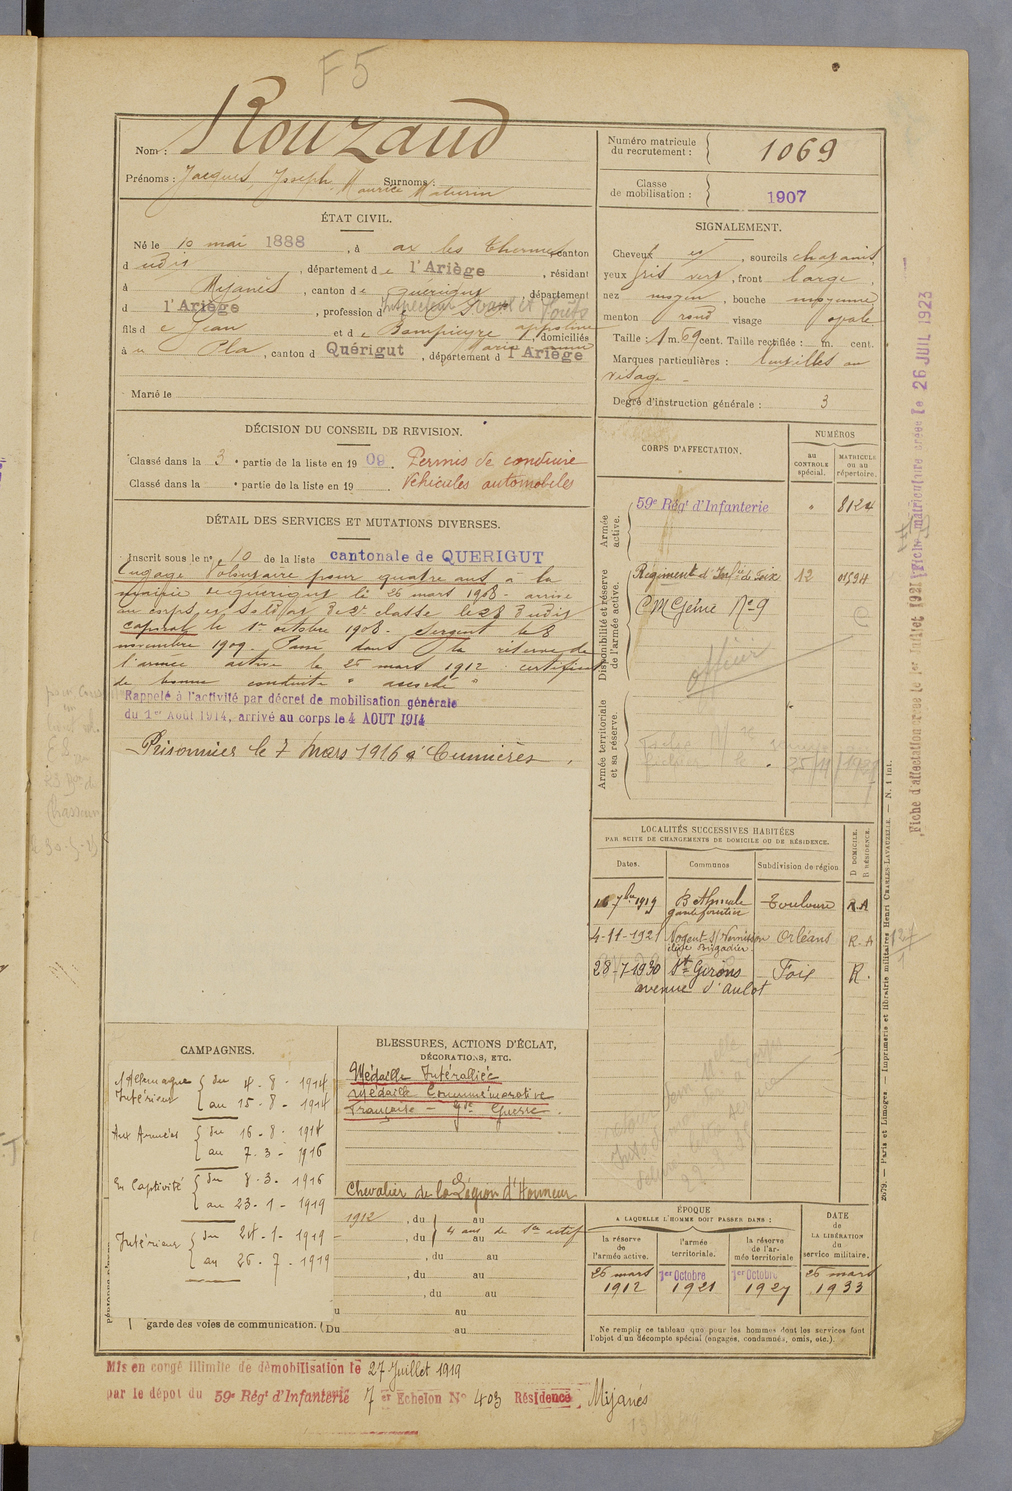 F5
Nom : Rouzaud
Prénoms : Jacques Joseph Maurice Maturin Surnoms :
Numéro matricule du recrutement : 1069
Classe de mobilisation : 1907
ÉTAT CIVIL.
Né le 10 mai 1888, à ax les Thermes, canton
d udit, département de l'Ariège, résidant
à Mijanès, canton de Quérigut, département
d l'Ariège, profession d
fils de Jean et de Bompieyre appoline Marie anne, domiciliés
à u Pla, canton d Quérigut, département d l'Ariège
Marié le
SIGNALEMENT.
Cheveux et, sourcils chatains,
yeux gris vert, front large,
nez moyen, bouche moyenne
menton rond visage ovale
Taille : 1 m. 69 cent. Taille rectifiée : m. cent.
Marques particulières : lentilles au
visage -
Degré d'instruction générale : 3
DÉCISION DU CONSEIL DE REVISION.
Classé dans la 3e partie de la liste en 1909. Permis de conduire
Classé dans la e partie de la liste en 19 . Véhicules automobiles
DÉTAIL DES SERVICES ET MUTATIONS DIVERSES.
Inscrit sous le n° 10 de la liste cantonale de QUERIGUT
Engagé Volontaire pour quatre ans à la
mairie de querigut le 26 mars 1908 - arrivé
au corps et soldat de 2e classe le 28 dudit
caporal le 1er octobre 1908. Sergent le 8
novembre 1909. Passé dans la réserve de
l'armée active le 26 mars 1912 certificat
de bonne conduite "accordé"
Rappelé à l'activité par décret de mobilisation générale
du 1er Août 1914, arrivé au corps le 4 AOUT 1914
Prisonnier le 7 mars 1916 à Cumières.
CORPS D'AFFECTATION.
NUMÉROS
au CONTROLE spécial.
MATRICULE ou au répertoire.
Armée active.
59e Régt d'Infanterie " 8124
Disponibilité et réserve de l'armée active.
Régiment d'Infie de Foix 12 01594
CM Génie No 9
officier
Armée territoriale et sa réserve.
LOCALITÉS SUCCESSIVES HABITÉES
PAR SUITE DE CHANGEMENTS DE DOMICILE OU DE RÉSIDENCE.
Dates. Communes Subdivision de région D DOMICILE. R RÉSIDENCE.
16 7bre 1919 garde forestier Toulouse R.A
4-11-1921 Nogent S/ Vernisson Orléans R.A
élève Brigadier
28-7-1930 St Girons Foix R.
avenue d'aulot
CAMPAGNES.
Allemagne
Intérieur { du 4 - 8 - 1914
au 15 - 8 - 1914
Aux Armées { du 16 - 8 - 1914
au 7 - 3 - 1916
En Captivité { du 8 - 3 - 1916
au 23 - 1 - 1919
Intérieur { du 24 - 1 - 1919
au 26 - 7 - 1919
garde des voies de communication.
BLESSURES, ACTIONS D'ÉCLAT,
DÉCORATIONS, ETC.
Médaille Interalliée
Médaille Commémorative
Française - Gde Guerre.
Chevalier de la Légion d'Honneur
1912, du au
, du 4 ans de Sce actif au
, du au
, du au
, du au
u au
Du au
ÉPOQUE
A LAQUELLE L'HOMME DOIT PASSER DANS :
la réserve de l'armée active. l'armée territoriale. la réserve de l'armée territoriale
DATE de LA LIBÉRATION du service militaire.
26 mars 1912 1er Octobre 1921 1er Octobre 1927 26 mars 1933
Ne remplir ce tableau que pour les hommes dont les services font
l'objet d'un décompte spécial (engagés, condamnés, omis, etc.).
Mis en congé illimité de démobilisation le 27 Juillet 1919
par le dépôt du 59e Régt d'Infanterie 7 er Echelon No 403 Résidence : Mijanès
Fiche d'affectation créée le 1er Juillet 1921 Fiche matriculaire créée le 26 JUIL 1923
2679. — Paris et Limoges. — Imprimerie et librairie militaires Henri CHARLES-LAVAUZELLE. — N. 1 int.